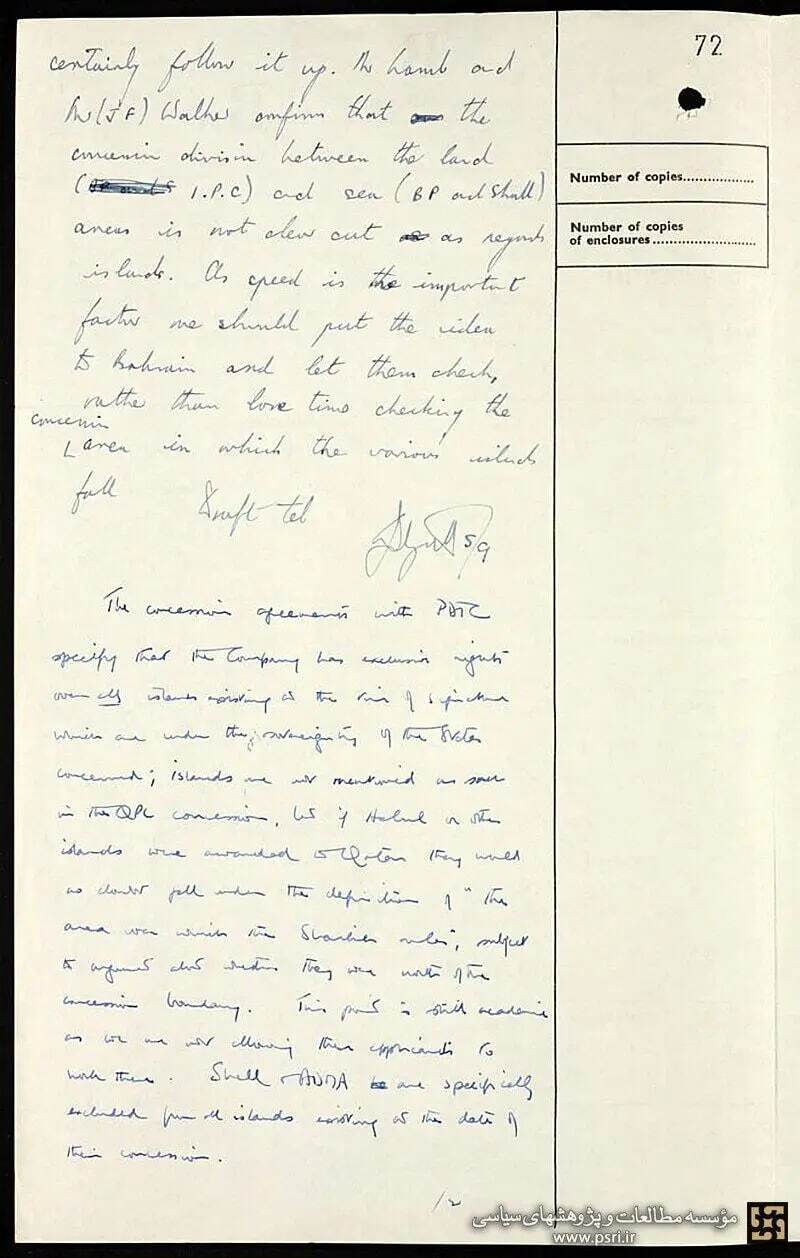 72
certainly follow it up. Mr Lamb and
Mr (J F) Walker confirm that the
concession division between the land
( I.P.C) and sea (BP and Shell)
areas is not clear cut as regards
islands. As speed is the important
factor we should put the idea
to Bahrain and let them check,
rather than lose time checking the
concession
area in which the various islands
fall
Draft tel
5/9
The concession agreements with PDTC
specify that the Company has exclusive rights
over all islands existing at the time of signature
which are under the sovereignty of the States
concerned; islands are not mentioned as such
in the QPC concession, but if Halul or other
islands were awarded to Qatar they would
no doubt fall under the definition of "the
area over which the Shaikh rules", subject
to argument about whether they were north of the
concession boundary. This point is still academic
as we are not allowing the applicants to
work there. Shell + ADMA are specifically
excluded from all islands existing at the date of
their concession.
/2
Number of copies..................
Number of copies
of enclosures..........................
مؤسسه مطالعات و پژوهشهای سیاسی
www.psri.ir